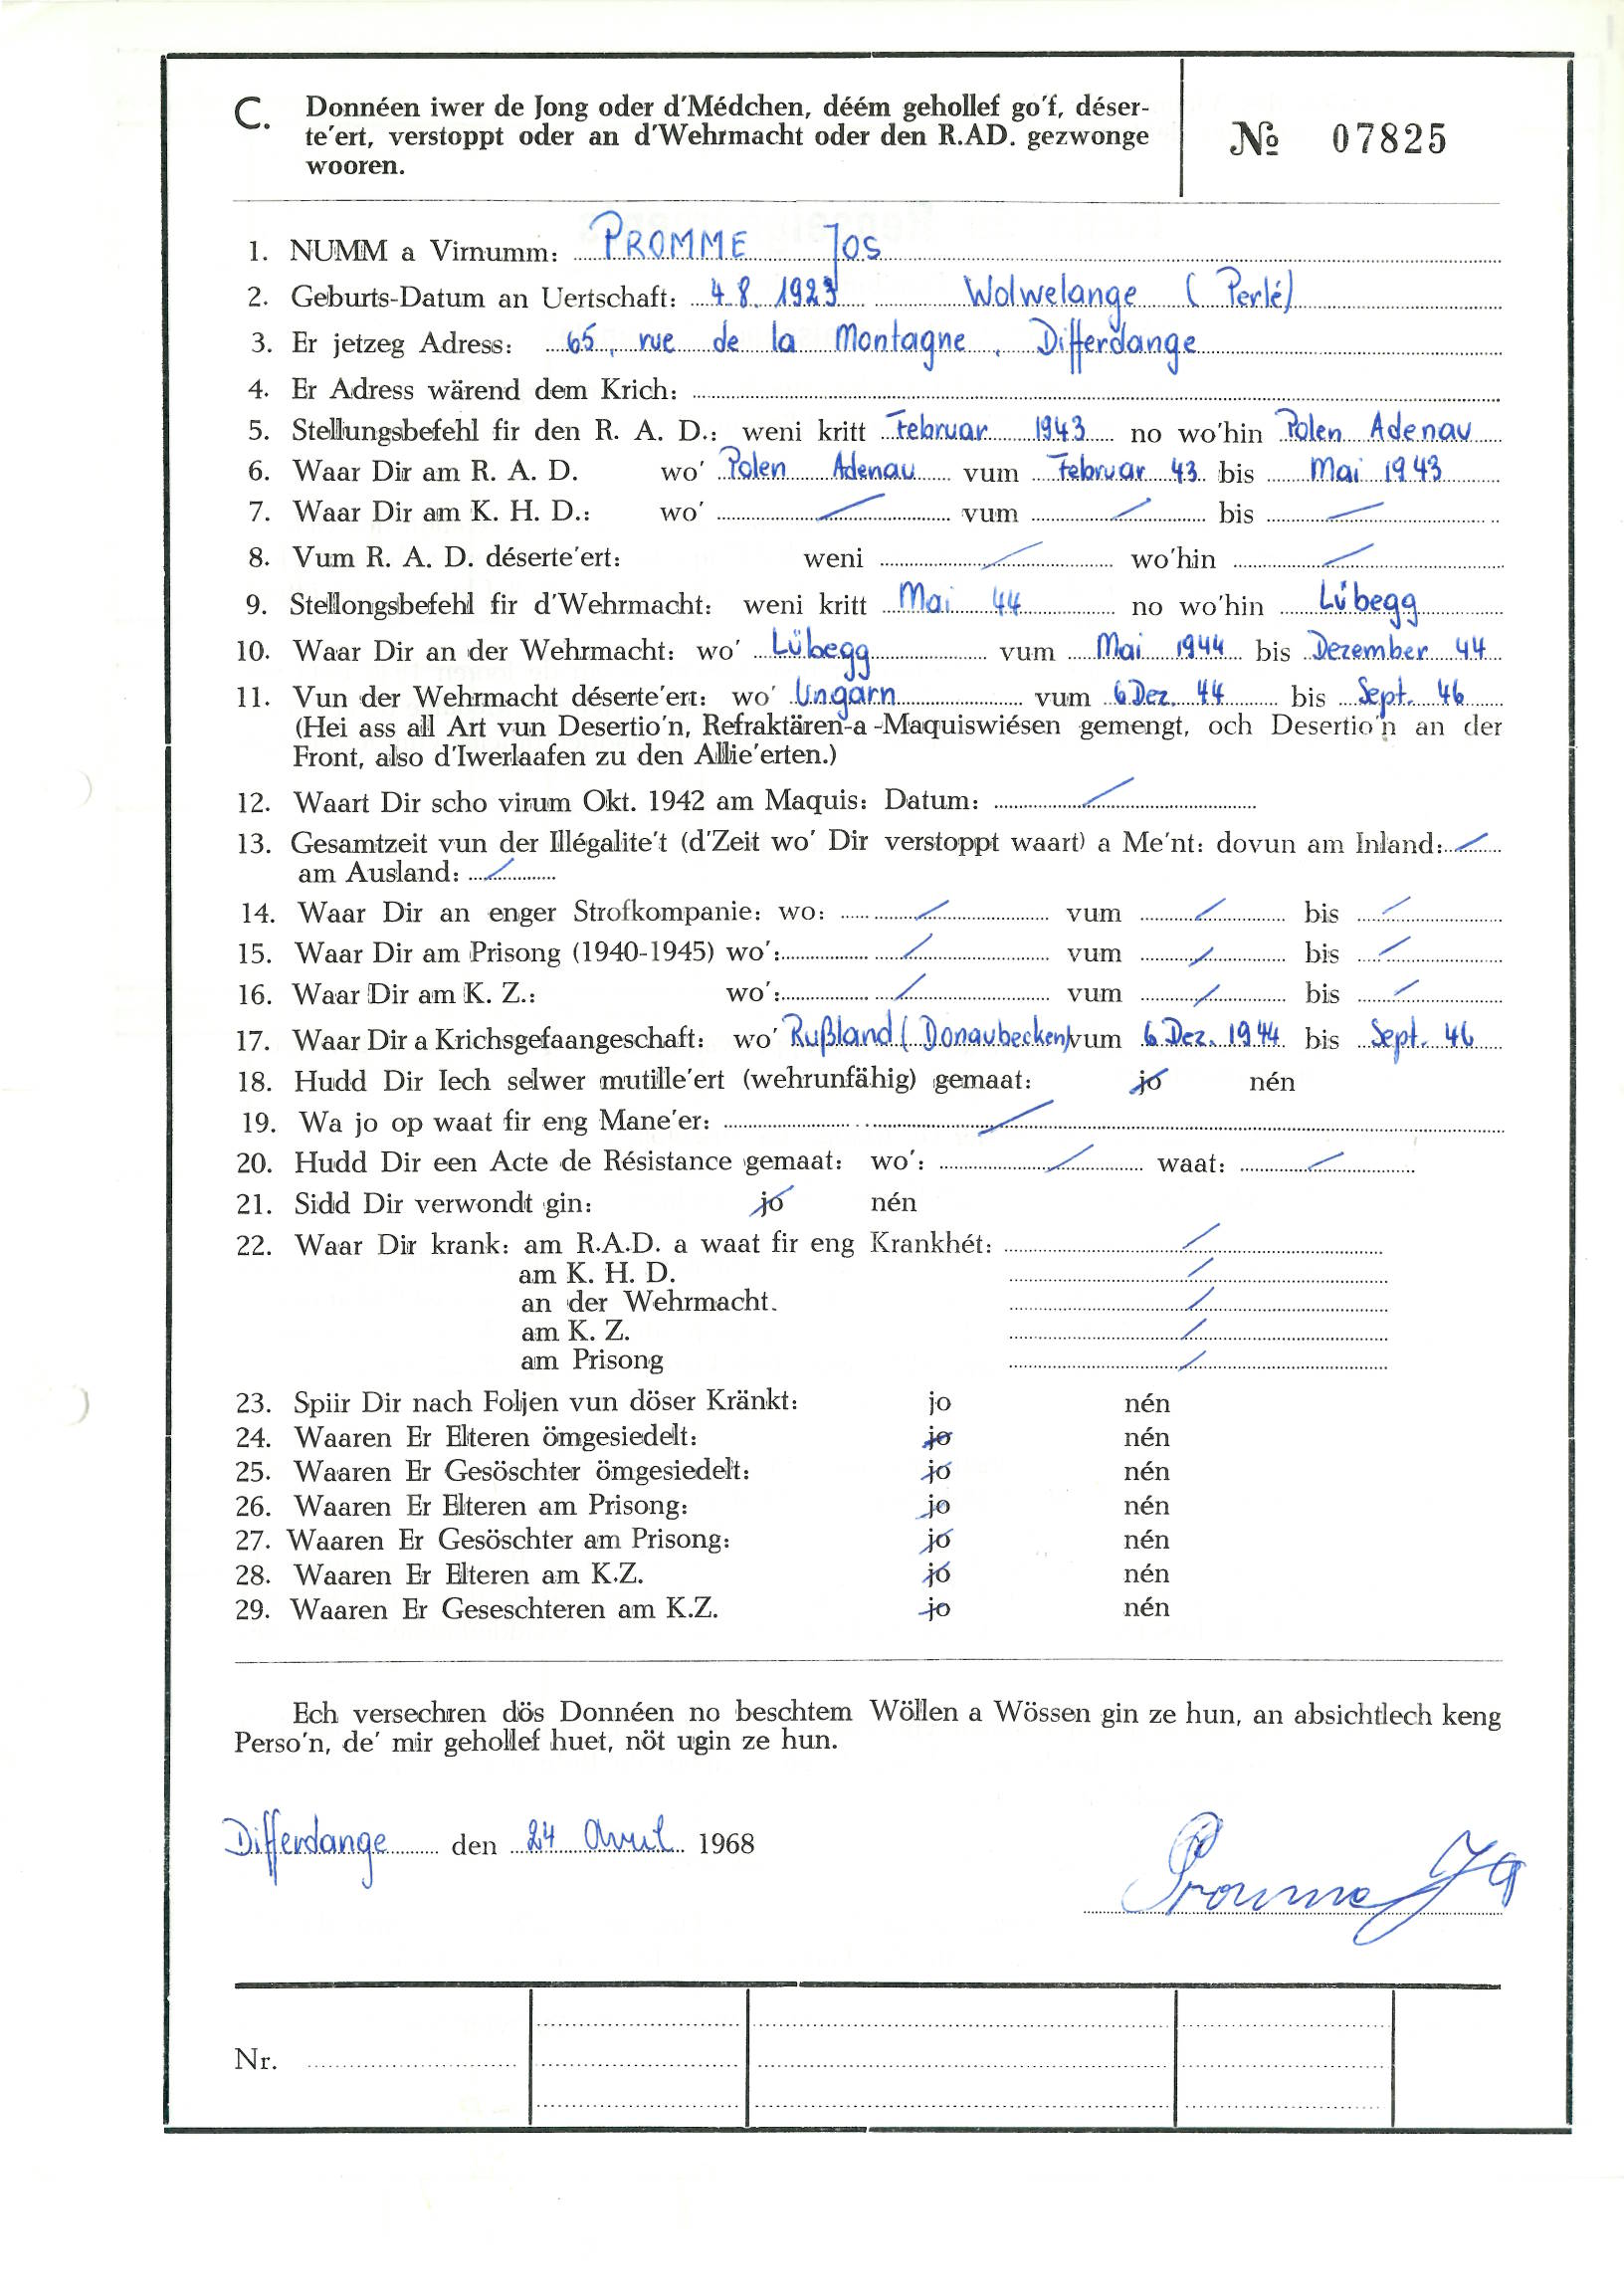 C. Donnéen iwer de Jong oder d'Médchen, déém gehollef go'f, déser-
te'ert, verstoppt oder an d'Wehrmacht oder den R.AD. gezwonge
wooren.
№ 07825
1. NUMM a Virnumm: PROMME Jos
2. Geburts-Datum an Uertschaft: 4.8.1923 Wolwelange (Perlé)
3. Er jetzeg Adress: 65, rue de la Montagne, Differdange
4. Er Adress wärend dem Krich:
5. Stellungsbefehl fir den R. A. D.: weni kritt Februar 1943 no wo'hin Polen Adenau
6. Waar Dir am R. A. D. wo' Polen Adenau vum Februar 43 bis Mai 1943
7. Waar Dir am K. H. D.: wo' / vum / bis /
8. Vum R. A. D. déserte'ert: weni / wo'hin /
9. Stellongsbefehl fir d'Wehrmacht: weni kritt Mai 44 no wo'hin Lübegg
10. Waar Dir an der Wehrmacht: wo' Lübegg vum Mai 1944 bis Dezember 44
11. Vun der Wehrmacht déserte'ert: wo' Ungarn vum 6 Dez. 44 bis Sept. 46
(Hei ass all Art vun Desertio'n, Refraktären-a-Maquiswiésen gemengt, och Desertio'n an der
Front, also d'Iwerlaafen zu den Allie'erten.)
12. Waart Dir scho virum Okt. 1942 am Maquis: Datum: /
13. Gesamtzeit vun der Illégalite't (d'Zeit wo' Dir verstoppt waart) a Me'nt: dovun am Inland: /
am Ausland: /
14. Waar Dir an enger Strofkompanie: wo: / vum / bis /
15. Waar Dir am Prisong (1940-1945) wo': / vum / bis /
16. Waar Dir am K. Z.: wo': / vum / bis /
17. Waar Dir a Krichsgefaangeschaft: wo' Rußland (Donaubecken) vum 6 Dez. 1944 bis Sept. 46
18. Hudd Dir Iech selwer mutille'ert (wehrunfähig) gemaat: jo nén
19. Wa jo op waat fir eng Mane'er: /
20. Hudd Dir een Acte de Résistance gemaat: wo': / waat: /
21. Sidd Dir verwondt gin: jo nén
22. Waar Dir krank: am R.A.D. a waat fir eng Krankhét: /
am K. H. D. /
an der Wehrmacht. /
am K. Z. /
am Prisong /
23. Spiir Dir nach Foljen vun döser Kränkt: jo nén
24. Waaren Er Elteren ömgesiedelt: jo nén
25. Waaren Er Gesöschter ömgesiedelt: jo nén
26. Waaren Er Elteren am Prisong: jo nén
27. Waaren Er Gesöschter am Prisong: jo nén
28. Waaren Er Elteren am K.Z. jo nén
29. Waaren Er Geseschteren am K.Z. jo nén
Ech versechren dös Donnéen no beschtem Wöllen a Wössen gin ze hun, an absichtlech keng
Perso'n, de' mir gehollef huet, nöt ugin ze hun.
Differdange den 24 Avril 1968
Promme Jos
Nr.